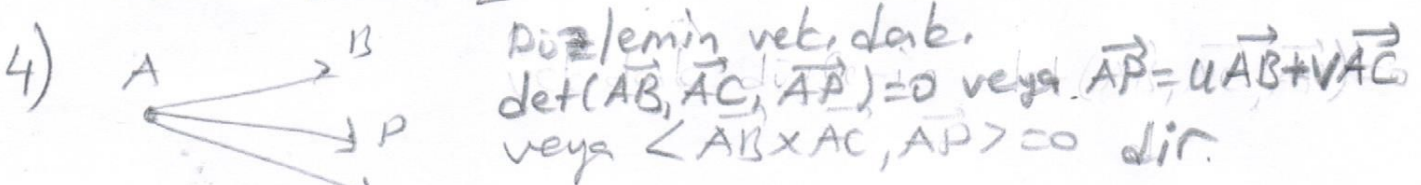 4)
A
B
P
Düzlemin vek. denk.
det(AB, AC, AP)=0 veya. AP = uAB+vAC
veya <ABxAC, AP>=0 dir.